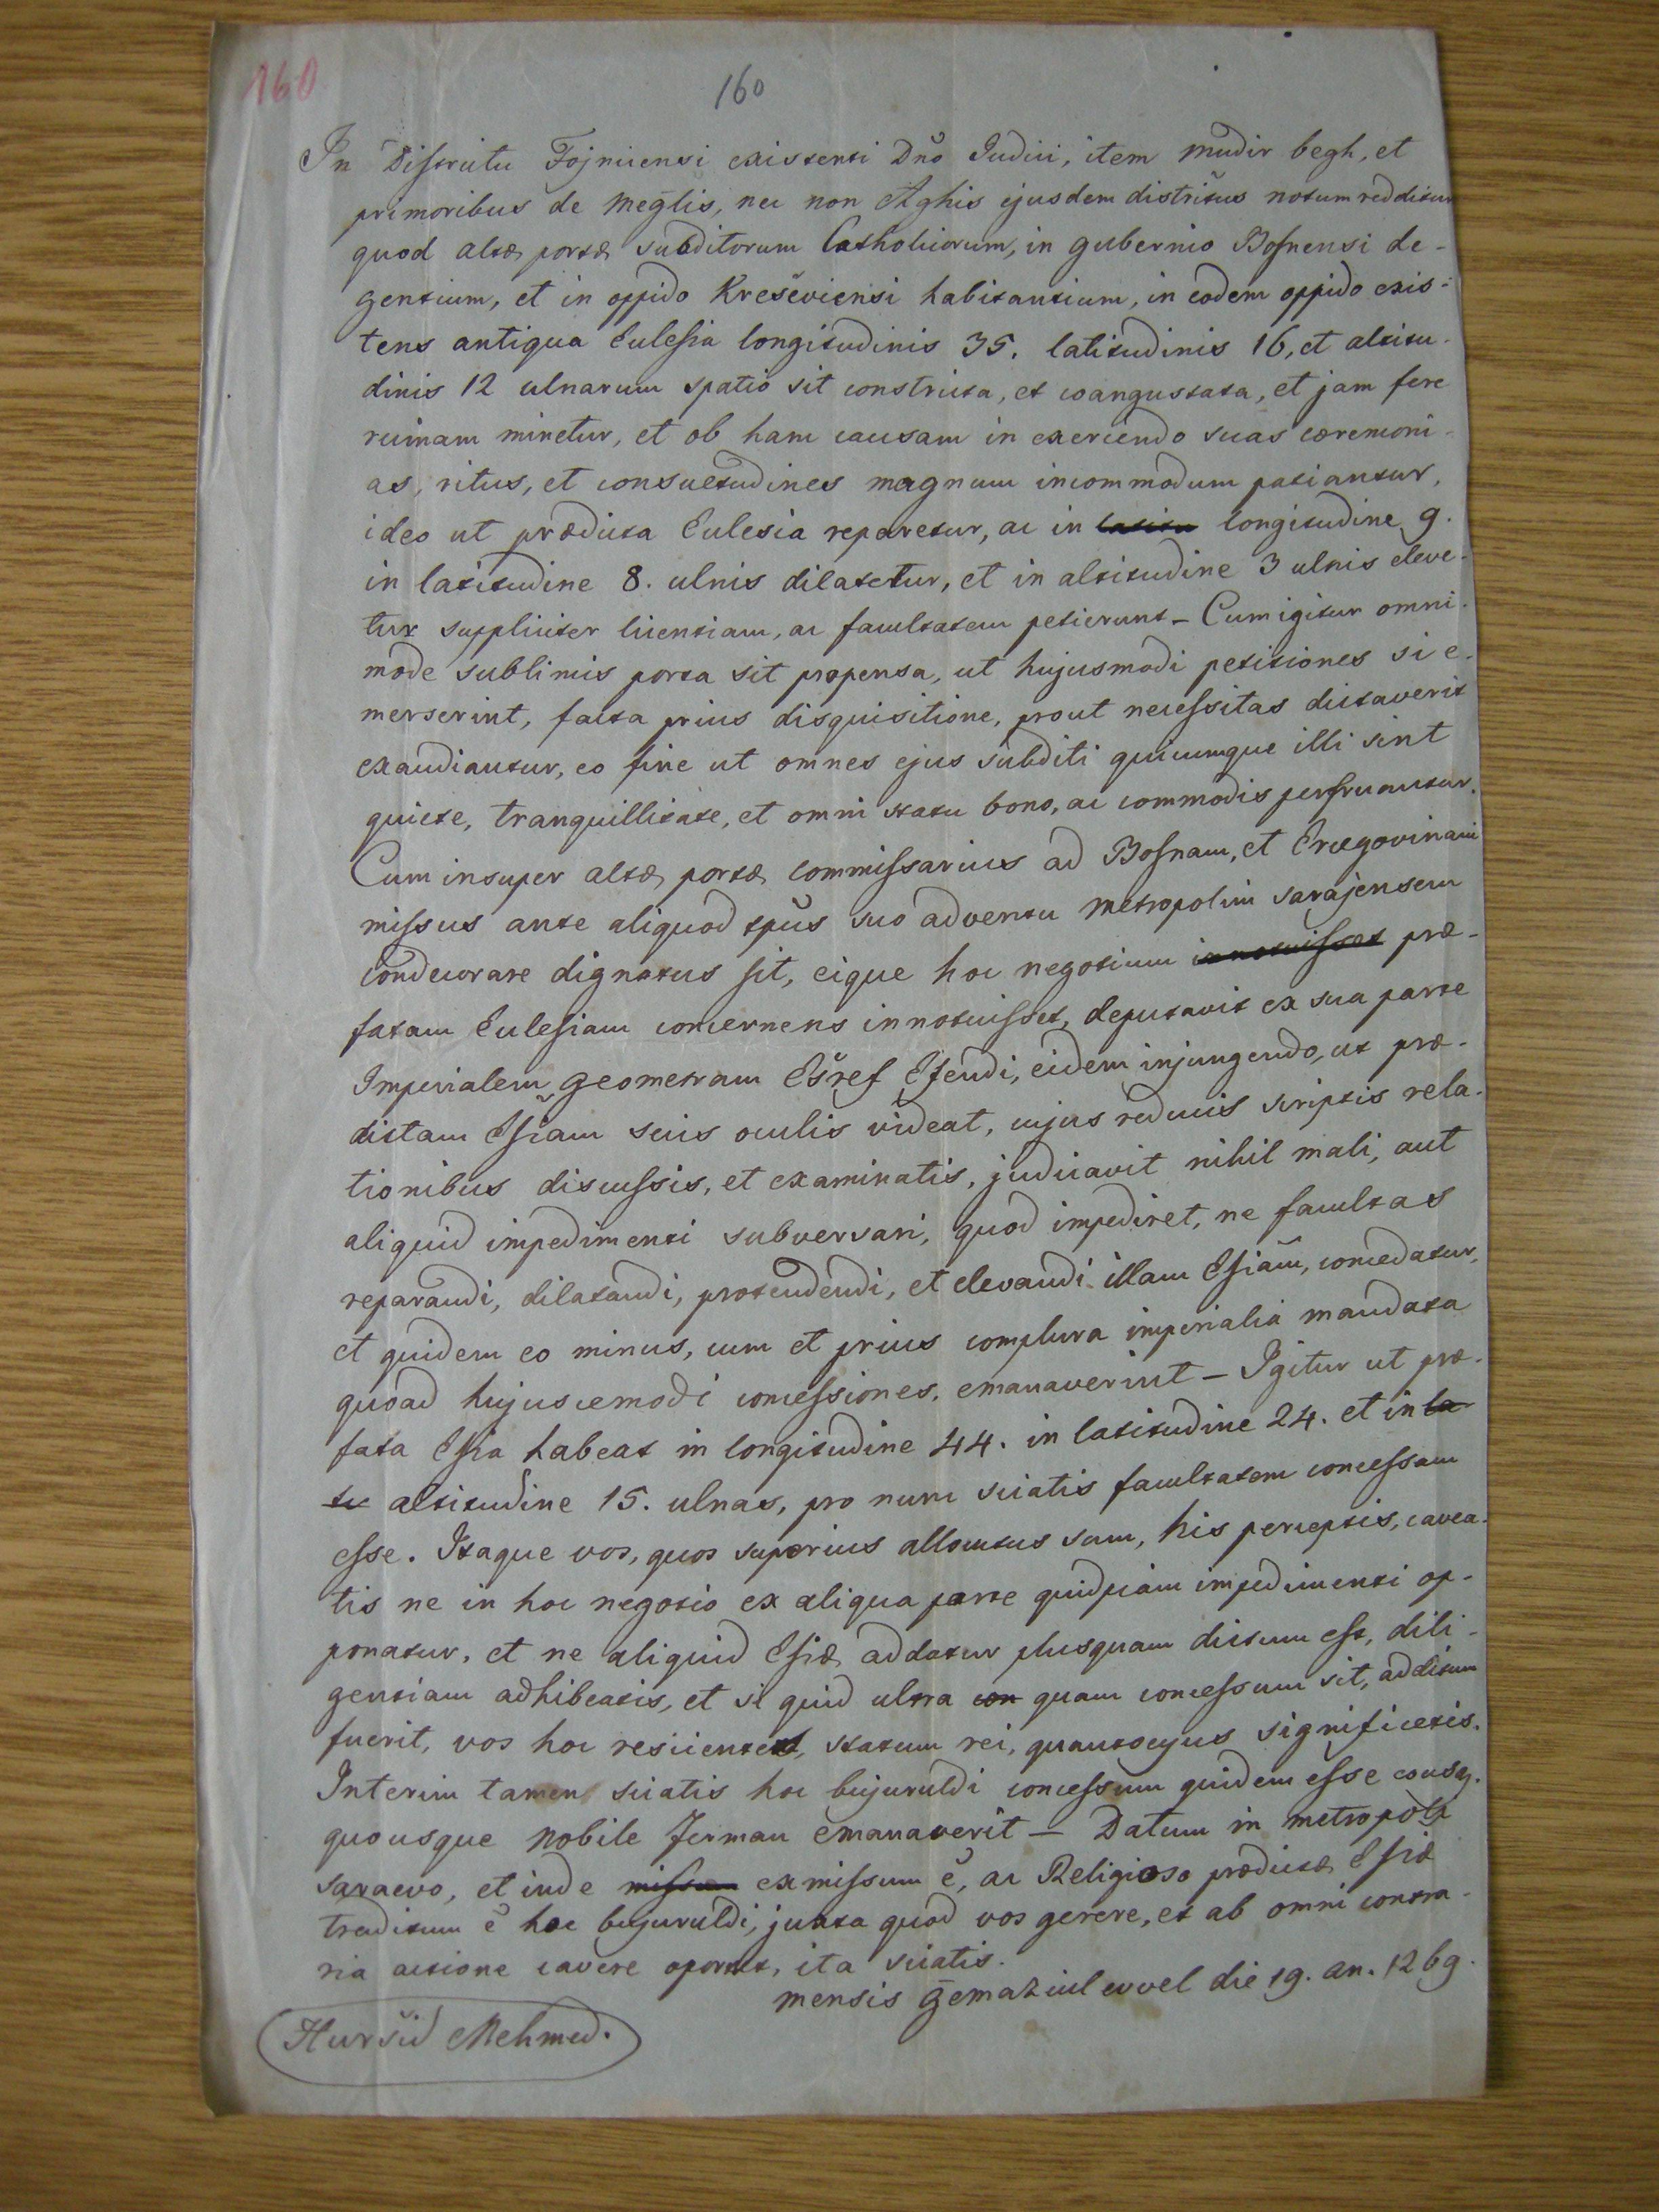 160
160
In Districtu Fojnicensi existenti Dño Judici, item Mudir begh, et
primoribus de Meglis, nec non Aghis ejusdem districtus notum redditur
quod altæ portæ subditorum Catholicorum, in gubernio Bosnensi de-
gentium, et in oppido Kreševiensi habitantium, in eodem oppido exis-
tens antiqua Ecclesia longitudinis 35. latitudinis 16, et altitu-
dinis 12 ulnarum spatio sit constructa, et coangustata, et jam fere
ruinam minetur, et ob hanc causam in exercendo suas cæremoni-
as, ritus, et consuetudines magnum incommodum patiantur,
ideo ut prædicta Ecclesia reparetur, ac in latitu longitudine 9.
in latitudine 8. ulnis dilatetur, et in altitudine 3 ulnis eleve-
tur suppliciter licentiam, ac facultatem petierunt – Cum igitur omni-
mode sublimis porta sit propensa, ut hujusmodi petitiones si e-
merserint, facta prius disquisitione, prout necessitas dictaverit
exaudiantur, eo fine ut omnes ejus subditi quicumque illi sint
quiete, tranquillitate, et omni statu bono, ac commodis perfruantur.
Cum insuper altæ portæ commissarius ad Bosnam, et Ercegovinam
missus ante aliquod tp̃us suo adventu metropolim sarajensem
condecorare dignatus sit, eique hoc negotium innotuisset præ-
fatam Ecclesiam concernens innotuisset, deputavit ex sua parte
Imperialem geometram Ešref Efendi, eidem injungendo, ut præ-
dictam Eſiam suis oculis videat, cujus reducis scriptis rela-
tionibus discussis, et examinatis, judicavit nihil mali, aut
aliquid impedimenti subversari, quod impediret, ne facultas
reparandi, dilatandi, protendendi, et elevandi illam Eſiam, concedatur,
et quidem eo minus, cum et prius complura imperialia mandata
quoad hujuscemodi concessiones, emanaverint – Igitur ut præ-
fata Eſia habeat in longitudine 44. in latitudine 24. et in la
tu altitudine 15. ulnas, pro nunc sciatis facultatem concessam
esse. Itaque vos, quos superius allocutus sum, his perceptis, cavea-
tis ne in hoc negotio ex aliqua parte quidpiam impedimenti op-
ponatur, et ne aliquid Eſiæ addatur plusquam dictum est, dili-
gentiam adhibeatis, et si quid ultra con quam concessum sit, additum
fuerit, vos hoc rescientes, statum rei, quantocyus significetis.
Interim tamen sciatis hoc bujuruldi concessum quidem esse eousq.
quousque nobile Ferman emanaverit – Datum in metropoli
saraevo, et inde missum exmissum ẽ, ac Religioso prædictæ Eſiæ
traditum ẽ hoc bujuruldi, juxta quod vos gerere, et ab omni contra-
ria actione cavere oportet, ita sciatis.
mensis Gemaziul evvel die 19. an. 1269.
Huršid Mehmed.